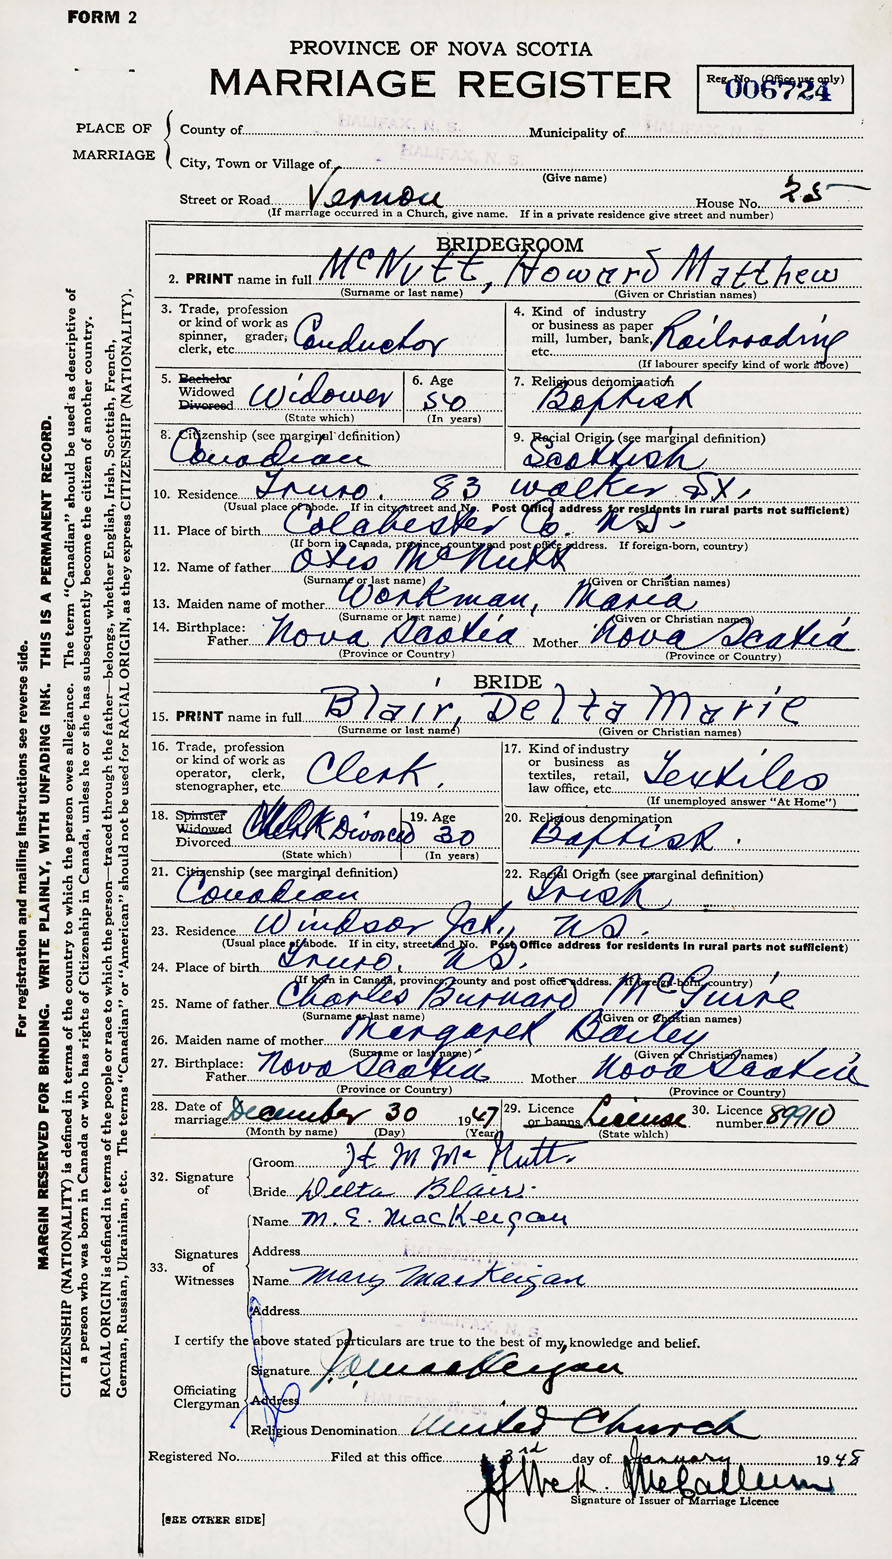 FORM 2
PROVINCE OF NOVA SCOTIA
MARRIAGE REGISTER
Reg. No. (Office use only)
006724
PLACE OF MARRIAGE
County of HALIFAX, N. S. Municipality of HALIFAX, N. S.
City, Town or Village of HALIFAX, N. S.
(Give name)
Street or Road Vernon House No. 25
(If marriage occurred in a Church, give name. If in a private residence give street and number)
BRIDEGROOM
2. PRINT name in full McNutt, Howard Matthew
(Surname or last name) (Given or Christian names)
3. Trade, profession or kind of work as spinner, grader, clerk, etc. Conductor
4. Kind of industry or business as paper mill, lumber, bank, etc. Railroading
(If labourer specify kind of work above)
5. Bachelor Widowed Divorced Widower
(State which)
6. Age 50
(In years)
7. Religious denomination Baptist
8. Citizenship (see marginal definition) Canadian
9. Racial Origin (see marginal definition) Scottish
10. Residence Truro. 83 Walker St.
(Usual place of abode. If in city street and No. Post Office address for residents in rural parts not sufficient)
11. Place of birth Colchester Co. N.S.
(If born in Canada, province, county and post office address. If foreign-born, country)
12. Name of father Otis McNutt
(Surname or last name) (Given or Christian names)
13. Maiden name of mother Workman, Maria
(Surname or last name) (Given or Christian names)
14. Birthplace: Father Nova Scotia Mother Nova Scotia
(Province or Country) (Province or Country)
BRIDE
15. PRINT name in full Blair, Delta Marie
(Surname or last name) (Given or Christian names)
16. Trade, profession or kind of work as operator, clerk, stenographer, etc. Clerk.
17. Kind of industry or business as textiles, retail, law office, etc. Textiles
(If unemployed answer "At Home")
18. Spinster Widowed Divorced. Divorced
(State which)
19. Age 30
(In years)
20. Religious denomination Baptist.
21. Citizenship (see marginal definition) Canadian
22. Racial Origin (see marginal definition) Irish
23. Residence Windsor Jct., N.S.
(Usual place of abode. If in city, street and No. Post Office address for residents in rural parts not sufficient)
24. Place of birth Truro, N.S.
(If born in Canada, province, county and post office address. If foreign-born, country)
25. Name of father Charles Burnard McGuire
(Surname or last name) (Given or Christian names)
26. Maiden name of mother Margaret Bailey
(Surname or last name) (Given or Christian names)
27. Birthplace: Father Nova Scotia Mother Nova Scotia
(Province or Country) (Province or Country)
28. Date of marriage December 30 1947
(Month by name) (Day) (Year)
29. Licence or banns License
(State which)
30. Licence number 89910
32. Signature of
Groom H M McNutt.
Bride Delta Blair.
33. Signatures of Witnesses
Name M. E. MacKeigan
Address HALIFAX, N. S.
Name Mary MacKeigan
Address HALIFAX, N. S.
I certify the above stated particulars are true to the best of my knowledge and belief.
Officiating Clergyman
Signature MacKeigan
Address HALIFAX, N. S.
Religious Denomination United Church
Registered No. Filed at this office 3rd day of January 1948
McCallum
Signature of Issuer of Marriage Licence
[SEE OTHER SIDE]
For registration and mailing instructions see reverse side.
MARGIN RESERVED FOR BINDING. WRITE PLAINLY, WITH UNFADING INK. THIS IS A PERMANENT RECORD.
CITIZENSHIP (NATIONALITY) is defined in terms of the country to which the person owes allegiance. The term "Canadian" should be used as descriptive of
a person who was born in Canada or who has rights of Citizenship in Canada, unless he or she has subsequently become the citizen of another country.
RACIAL ORIGIN is defined in terms of the people or race to which the person—traced through the father—belongs, whether English, Irish, Scottish, French,
German, Russian, Ukrainian, etc. The terms "Canadian" or "American" should not be used for RACIAL ORIGIN, as they express CITIZENSHIP (NATIONALITY).